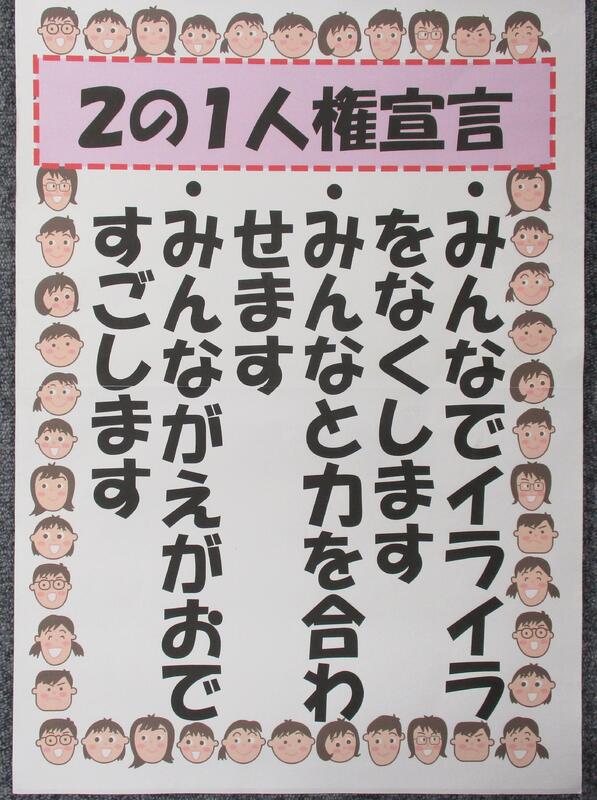 2の1人権宣言
・みんなでイライラ
をなくします
・みんなと力を合わ
せます
・みんながえがおで
すごします